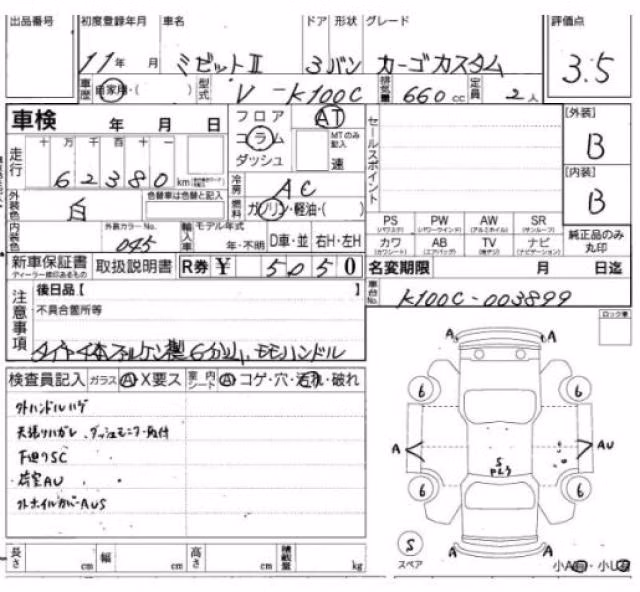 出品番号 初度登録年月 車名 ドア 形状 グレード 評価点
11年 月 ミゼットII 3バン カーゴカスタム 3.5
車歴 自家用・( ) 型式 V-K100C 排気量 660cc 定員 2人
車検 年 月 日 フロア コラム ダッシュ AT MTのみ記入 速 セールスポイント [外装] B
走行 十 万 千 百 十 一 62380 km 冷房 AC [内装] B
外装色 白 色替車は色替と記入 燃料 ガソリン・軽油・( )
PS PW AW SR 純正品のみ丸印
内装色 外装カラーNo. 045 輸入車 モデル年式 年・不明 D車・並 右H・左H
カワ AB TV ナビ
新車保証書 ディーラー印あるもの 取扱説明書 R券 ¥ 5050 名変期限 月 日迄
注意事項 後日品【 】 車台No. K100C-003899
不具合箇所等 ロック車
タイヤ4本ファルケン製6分山、モモハンドル
検査員記入 ガラス A X要ス 室内シート A コゲ・穴・汚れ・破れ
外ハンドルハゲ
天張りハガレ、ダッシュモニター取付
下廻りSC
荷室AU
外ホイルカバーAUS
A A
6 6
A S AU
6 6
S スペア A A
長さ cm 幅 cm 高さ cm 積載量 kg